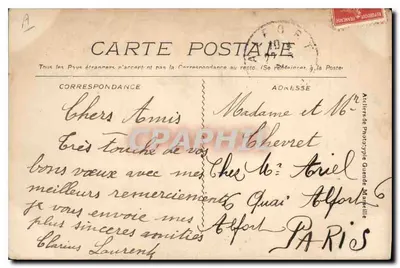 CARTE POSTALE
Tous les Pays étrangers n'acceptent pas la Correspondance au recto. (Se renseigner à la Poste)
CORRESPONDANCE
Chers Amis
Très touché de vos
bons vœux avec mes
meilleurs remerciements
je vous envoie mes
plus sincères amitiés
Clarius Laurent
ADRESSE
Madame et Mr
Chevret
Chez Mr Ariel
6 Quai Alfort
Alfort
PARIS
CPARAMA
Ateliers de Phototypie Marseille